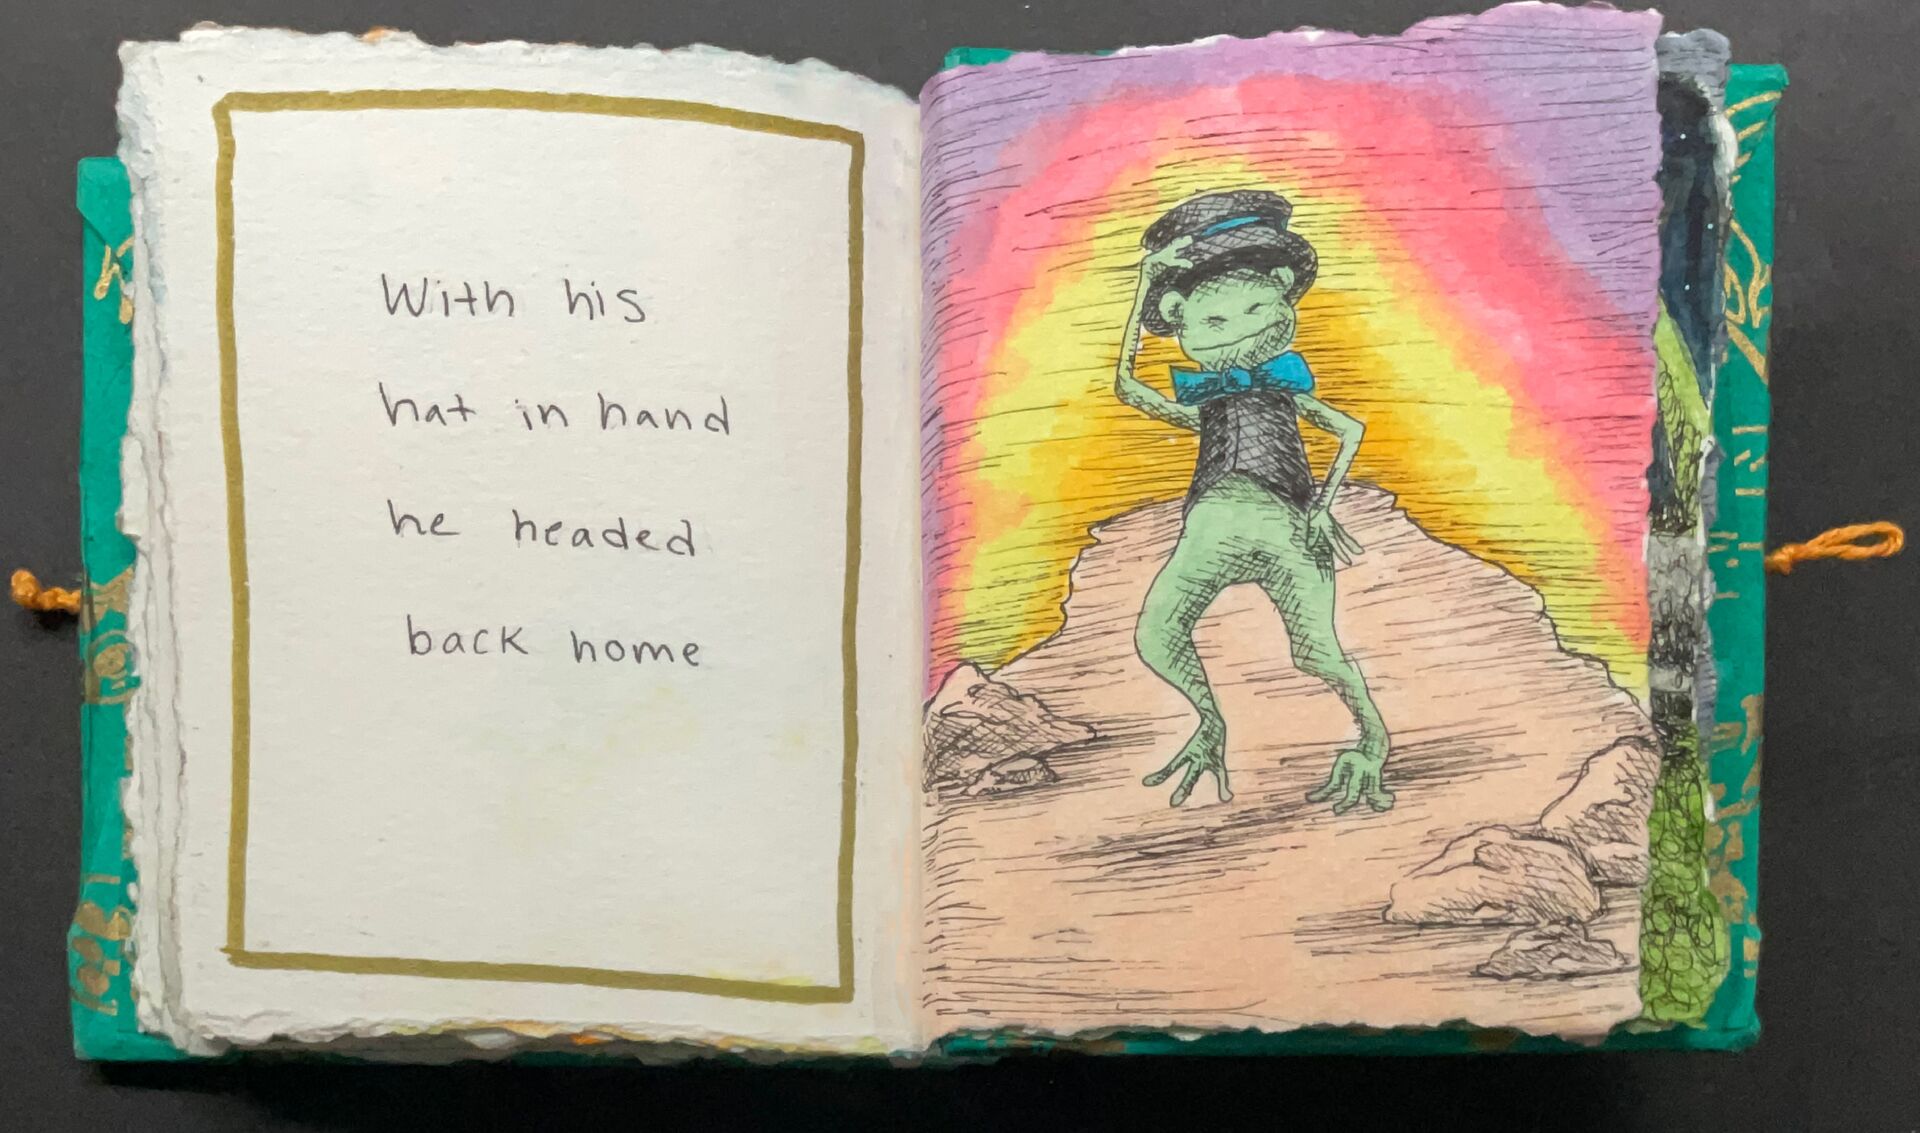 With his
hat in hand
he headed
back home